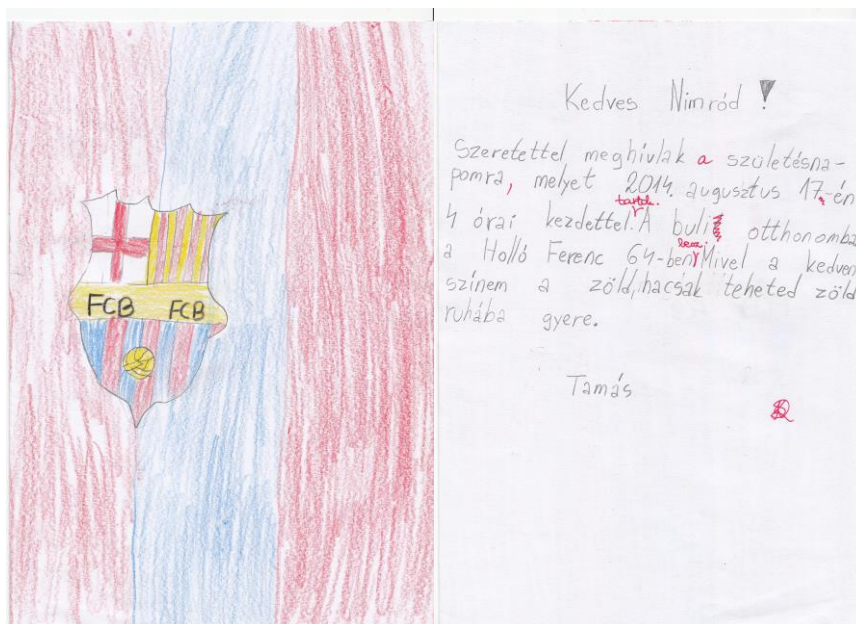 FCB FCB
Kedves Nimród!
Szeretettel meghívlak a születésna-
pomra, melyet 2014. augusztus 17.-én
tartok.
4 órai kezdettel. A buli otthonomba
lesz.
a Holló Ferenc 64-ben, Mivel a kedven
színem a zöld, hacsak teheted zöld
ruhába gyere.
Tamás